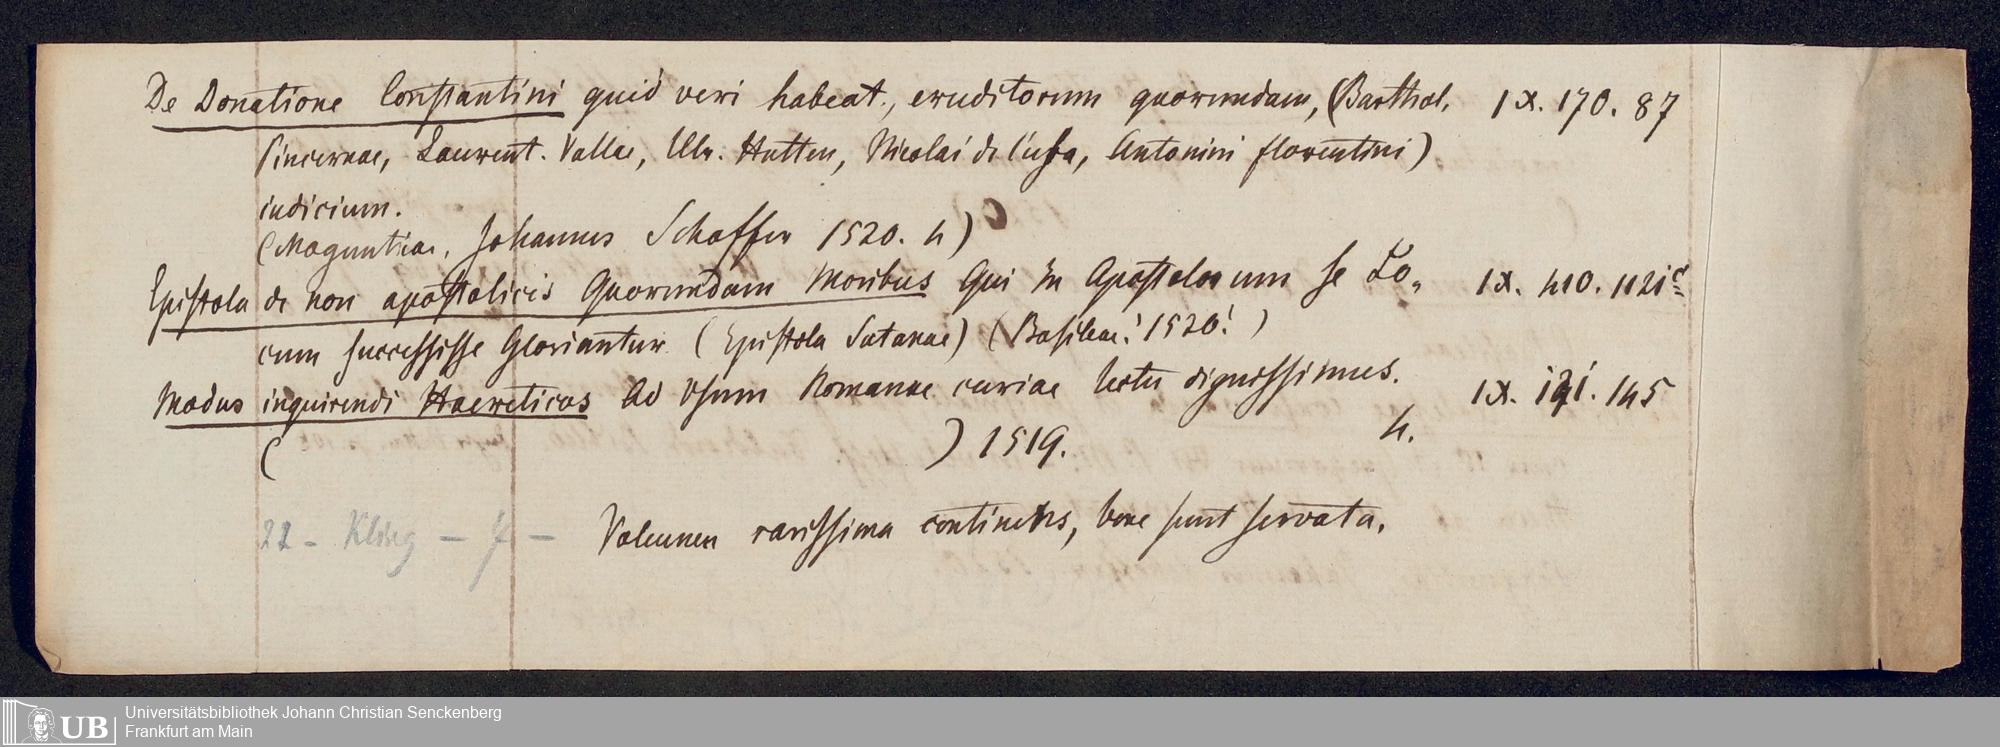 De Donatione Constantini quid veri habeat, eruditorum quorundam, (Barthol. IX. 170. 87
Pincernae, Laurent. Vallae, Ulr. Hutten, Nicolai de Cusa, Antonini florentini)
iudicium.
(Maguntiae, Johannes Schoffer 1520. 4)
Epistola de non apostolicis Quorundam Moribus Qui in Apostolorum se Lo- IX. 410. 1121c
cum successisse Gloriantur (Epistola Satanae) (Basileae! 1520!)
Modus inquirendi Haereticos Ad Usum Romanae curiae lectu dignissimus. IX. 121. 145
( ) 1519. 4.
22 - Kling - f - Volumen rarissima continens, bene sunt servata.
Universitätsbibliothek Johann Christian Senckenberg
UB Frankfurt am Main